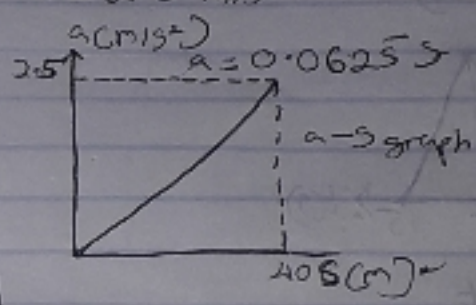 a(m/s²)
2.5
a = 0.0625 s
a-s graph
40 S(m)